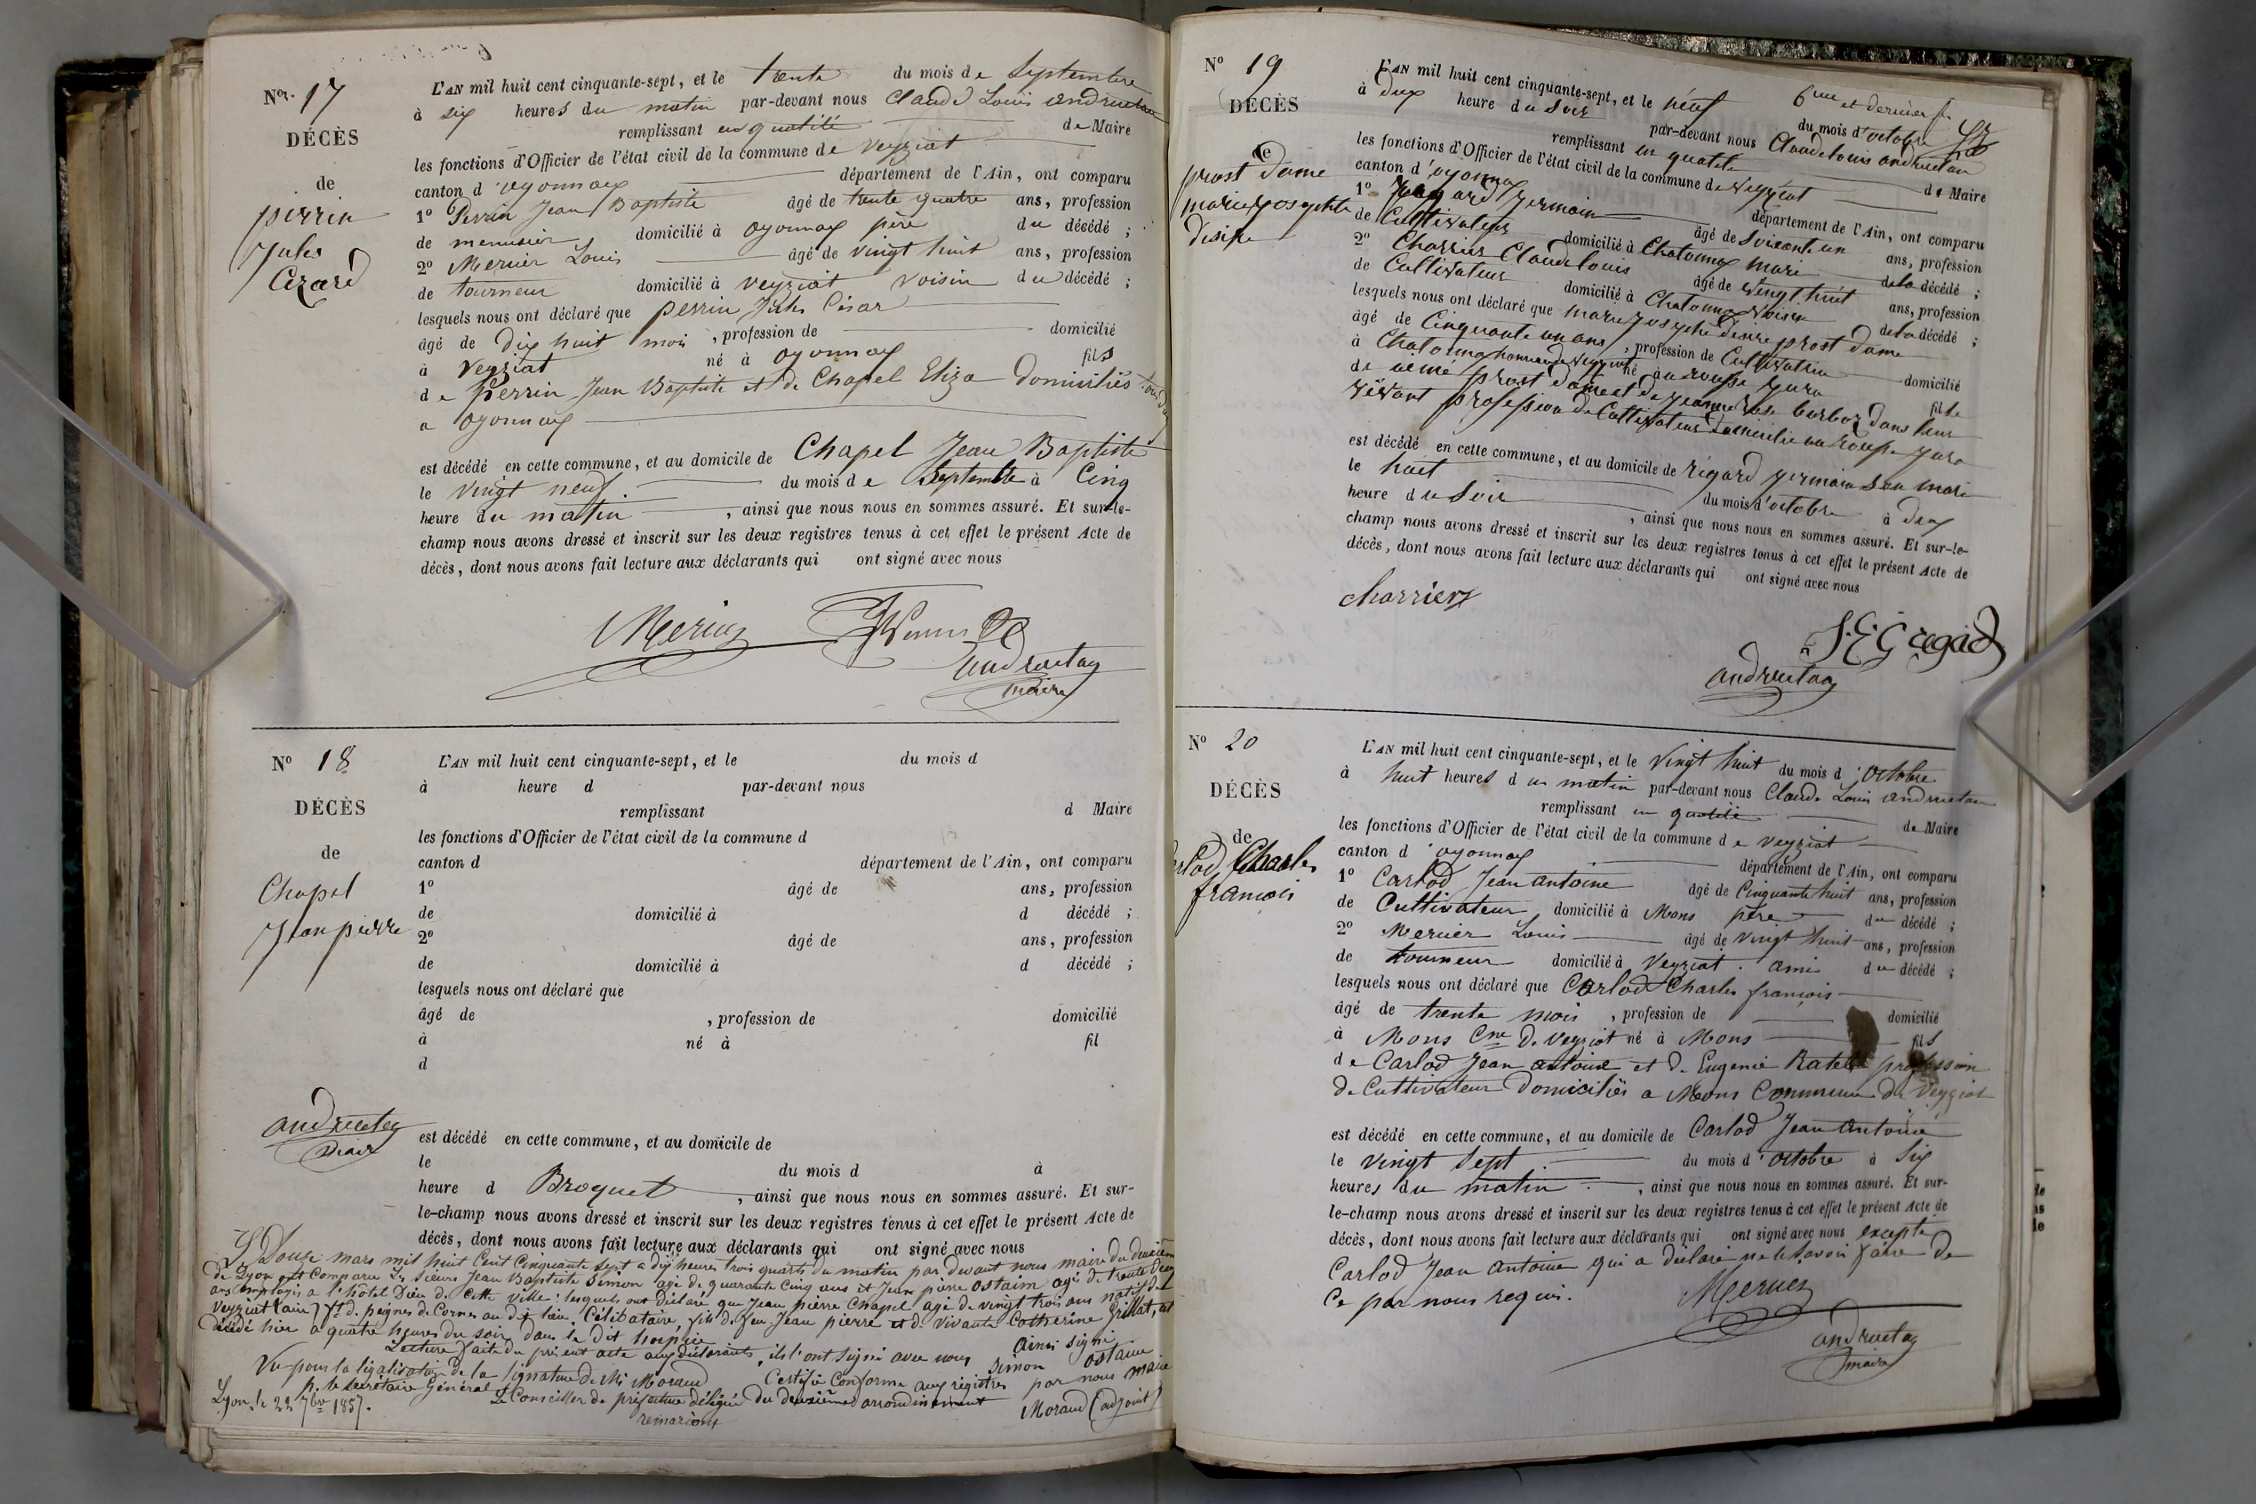 Nos 17
DÉCÈS
de
perrin
Jules
Cézard
L'AN mil huit cent cinquante-sept, et le trente du mois de Septembre
à six heures du matin par-devant nous Claude Louis andruetan
remplissant en qualité de Maire
les fonctions d'Officier de l'état civil de la commune de Veyziat
canton d'oyonnax département de l'Ain, ont comparu
1º Perrin Jean Baptiste âgé de trente quatre ans, profession
de menuisier domicilié à oyonnax père du décédé ;
2º Mercier Louis âgé de vingt huit ans, profession
de tourneur domicilié à veyziat voisin du décédé ;
lesquels nous ont déclaré que perrin Jules César
âgé de dix huit mois , profession de domicilié
à Veyziat né à oyonnax fils
de Perrin Jean Baptiste et de Chapel Eliza domiciliés
a oyonnax
est décédé en cette commune, et au domicile de Chapel Jean Baptiste
le vingt neuf du mois de Septembre à Cinq
heure du matin , ainsi que nous nous en sommes assuré. Et sur-le-
champ nous avons dressé et inscrit sur les deux registres tenus à cet effet le présent Acte de
décès, dont nous avons fait lecture aux déclarants qui ont signé avec nous
Mercier
andruetan
maire
Nº 18
DÉCÈS
de
Chapel
Jean pierre
L'AN mil huit cent cinquante-sept, et le du mois d
à heure d par-devant nous
remplissant d Maire
les fonctions d'Officier de l'état civil de la commune d
canton d département de l'Ain, ont comparu
1º âgé de ans, profession
de domicilié à d décédé ;
2º âgé de ans, profession
de domicilié à d décédé ;
lesquels nous ont déclaré que
âgé de , profession de domicilié
à né à fil
d
andruetan
maire
est décédé en cette commune, et au domicile de
le du mois d à
heure d Broquet , ainsi que nous nous en sommes assuré. Et sur-
le-champ nous avons dressé et inscrit sur les deux registres tenus à cet effet le présent Acte de
décès, dont nous avons fait lecture aux déclarants qui ont signé avec nous
Douze mars mil huit Cent Cinquante Sept a dix heures trois quarts du matin par devant nous maire du deuxieme
de Lyon ont Comparu Les Sieurs Jean Baptiste Simon agé de quarante Cinq ans et Jean pierre ostaim agé de trente deux
ans employés a l'hotel Dieu de Cette ville : lesquels ont déclaré que Jean pierre Chapel agé de vingt trois ans natif de
Veyziat (ain) ft de peignes de Cornes au dit lieu, Célibataire, fils de feu Jean pierre et de vivante Catherine Grillat, est
décédé hier a quatre heures du soir dans le dit hospice
Lecture faite du présent acte aux déclarants, ils l'ont signé avec nous ainsi signé
Simon ostaim
Vu pour la légalisation de la signature de Mr Moraud Certifié Conforme aux registres par nous maire
p. le secrétaire Général Le Conseiller de préfecture délégué du deuxième arrondissement Moraud (adjoint)
Lyon, le 22 7bre 1857.
Nº 19
DÉCÈS
de
prost dame
marie josephte
désire
6me et dernier f.
L'AN mil huit cent cinquante-sept, et le neuf du mois d'octobre
à dux heure du Soir par-devant nous Claude louis andruetan
remplissant en qualité de Maire
les fonctions d'Officier de l'état civil de la commune de Veyziat
canton d'oyonnax département de l'Ain, ont comparu
1º germain âgé de Soixante un ans, profession
de Cultivateur domicilié à Chatonnax mari de la décédé ;
2º Charrier Claude louis âgé de Vingt huit ans, profession
de Cultivateur domicilié à Chatonnax Voisin de la décédé ;
lesquels nous ont déclaré que marie josephe désire prost dame
âgé de Cinquante un ans , profession de Cultivatrice domicilié
à Chatonnax né à fille
de aimé prost dame et de jeanne rose barbaz dans leur
vivant profession de Cultivateur domicilie jura
est décédé en cette commune, et au domicile de régard germain Son mari
le huit du mois d'octobre à dux
heure du Soir , ainsi que nous nous en sommes assuré. Et sur-le-
champ nous avons dressé et inscrit sur les deux registres tenus à cet effet le présent Acte de
décès, dont nous avons fait lecture aux déclarants qui ont signé avec nous
charrier
andruetan
Nº 20
DÉCÈS
de
Carlod Charles
francois
L'AN mil huit cent cinquante-sept, et le Vingt huit du mois d'octobre
à huit heures du matin par-devant nous Claude Louis andruetan
remplissant en qualité de Maire
les fonctions d'Officier de l'état civil de la commune de Veyziat
canton d'oyonnax département de l'Ain, ont comparu
1º Carlod Jean antoine âgé de Cinquante huit ans, profession
de Cultivateur domicilié à Mons père du décédé ;
2º Mercier Louis âgé de vingt huit ans, profession
de tourneur domicilié à Veyziat. ami du décédé ;
lesquels nous ont déclaré que Carlod Charles françois
âgé de trente mois , profession de domicilié
à Mons Cne de Veyziat né à Mons fils
de Carlod Jean antoine et de Eugenie profession
de Cultivateur domiciliés a Mons Commune de Veyziat
est décédé en cette commune, et au domicile de Carlod Jean antoine
le vingt Sept du mois d'octobre à Six
heures du matin , ainsi que nous nous en sommes assuré. Et sur-
le-champ nous avons dressé et inscrit sur les deux registres tenus à cet effet le présent Acte de
décès, dont nous avons fait lecture aux déclarants qui ont signé avec nous excepté
Carlod Jean antoine qui a déclaré ne le Savoir faire de
Ce par nous requis.
Mercier
andruetan
maire